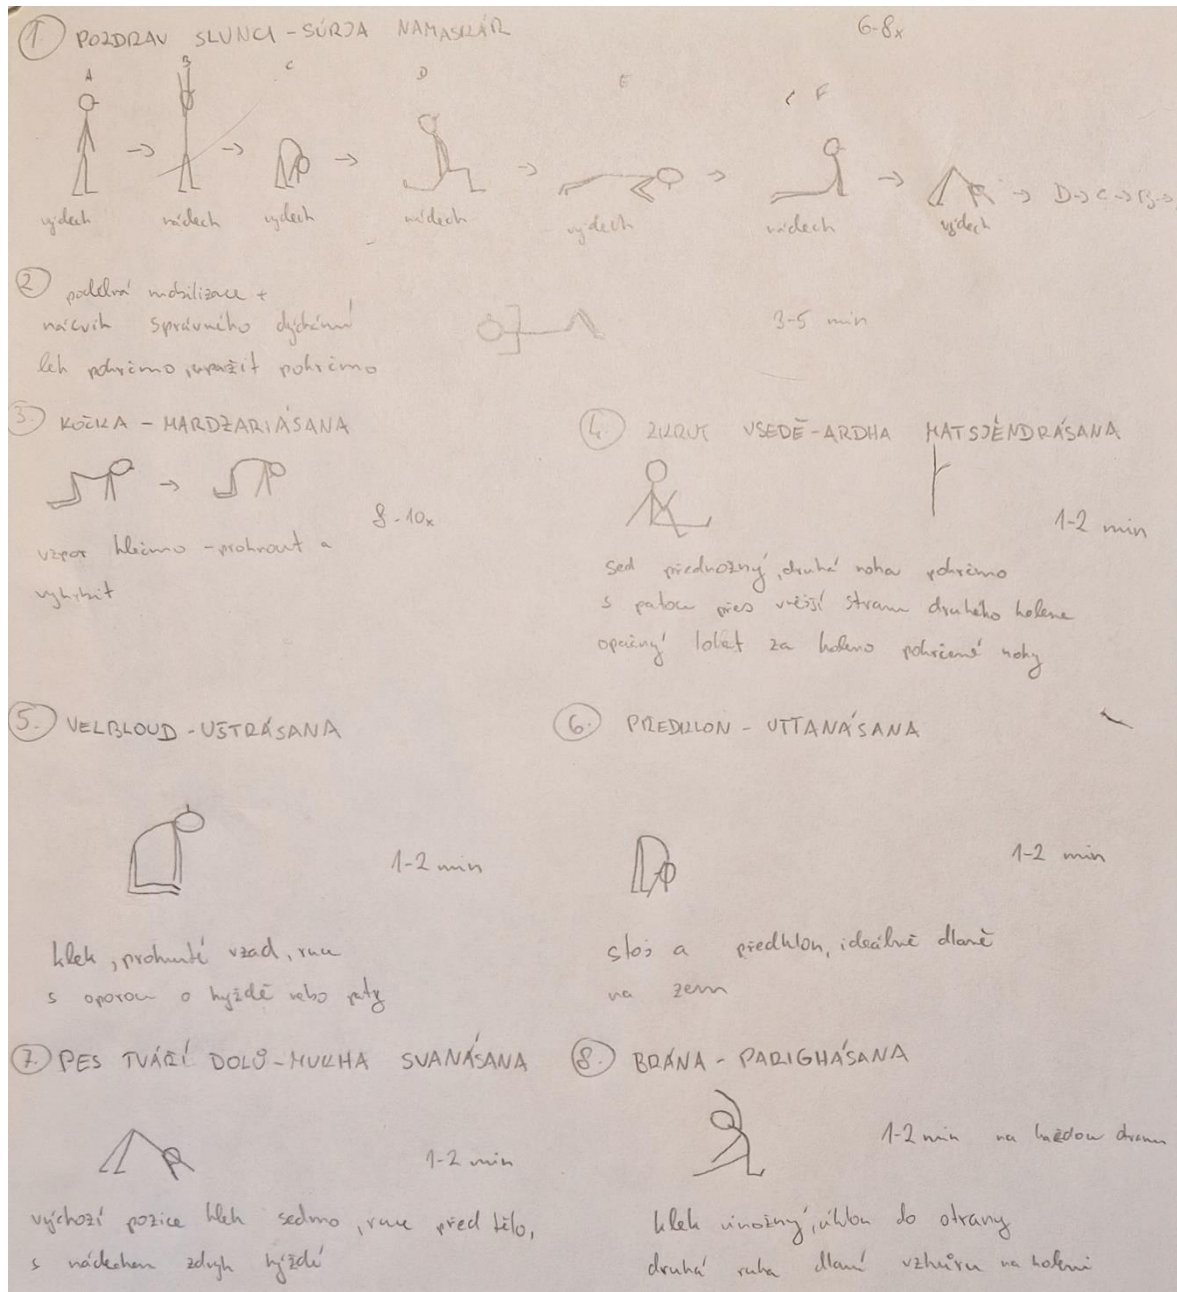 1. POZDRAV SLUNCI - SÚRJA NAMASKÁR 6-8x
A B C D E F
výdech nádech výdech nádech výdech nádech výdech D → C → B →
2 mobilizace + 3-5 min
nácvik správného dýchání
leh pokrčmo, upažit pokrčmo
3. KOČKA - MARDŽARIÁSANA
8-10x
vzpor klečmo - prohnout a
vyhrbit
4. ZKRUT VSEDĚ - ARDHA MATSJÉNDRÁSANA
1-2 min
sed přednožný, druhá noha pokrčmo
s patou přes vnější stranu druhého kolene
opačný loket za koleno pokrčené nohy
5. VELBLOUD - UŠTRÁSANA
1-2 min
klek, prohnutí vzad, ruce
s oporou o hýždě nebo paty
6. PŘEDKLON - UTTANÁSANA
1-2 min
stoj a předklon, ideálně dlaně
na zem
7. PES TVÁŘÍ DOLŮ - MUKHA SVANÁSANA
1-2 min
výchozí pozice klek sedmo, ruce před tělo,
s nádechem zdvih hýždí
8. BRÁNA - PARIGHÁSANA
1-2 min na každou stranu
klek únožný, úklon do strany
druhá ruka dlaní vzhůru na koleni